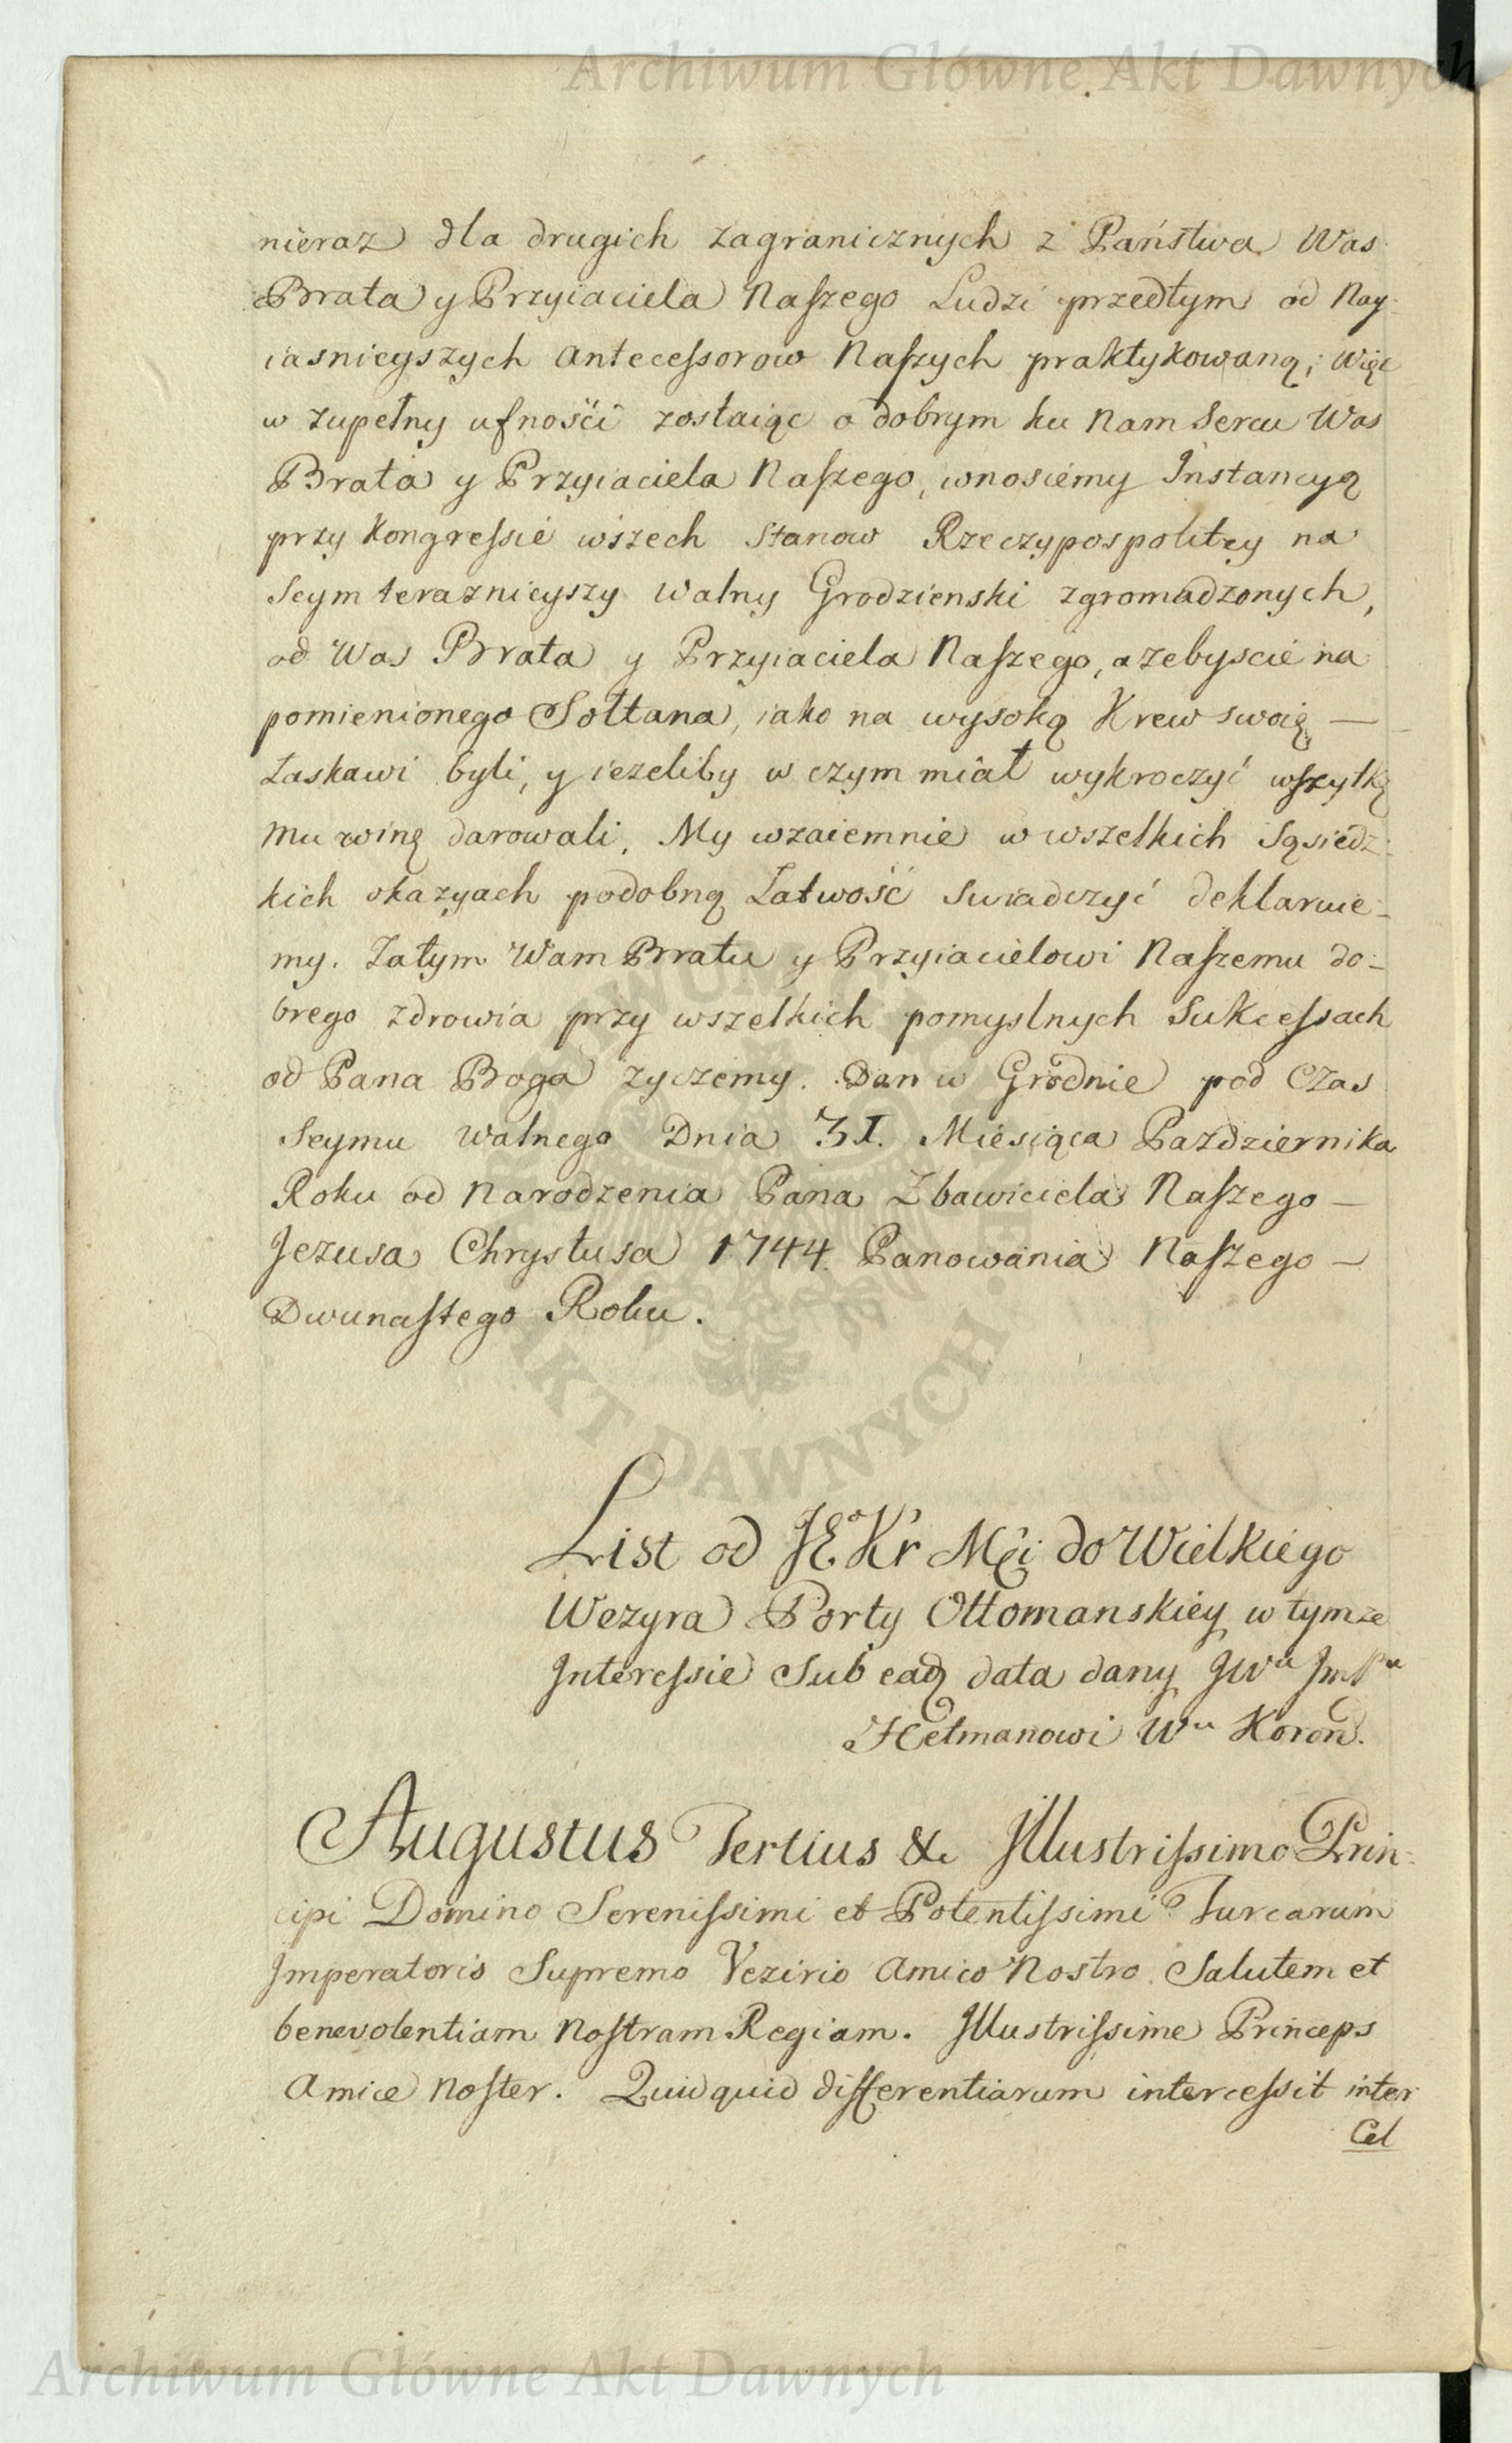 Archiwum Główne Akt Dawnych
nieraz dla drugich zagranicznych z Państwa Was
Brata y Przyiaciela Naszego Ludzi przedtym od Nay-
iasnieyszych Antecessorow Naszych praktykowaną; Więc
w zupełny ufności zostaiąc o dobrym ku Nam Sercu Was
Brata y Przyiaciela Naszego, wnosiemy Instancyą
przy Kongressie wszech Stanow Rzeczypospolitey na
Seym teraznieyszy Walny Grodzienski zgromadzonych,
od Was Brata y Przyiaciela Naszego, azebyscie na
pomienionego Sołtana, iako na wysoką Krew swoię —
Łaskawi byli, y iezeliby w czym miał wykroczyć wszytkę
mu winę darowali. My wzaiemnie w wszelkich Sąsiedz-
kich okazyach podobną Łatwość Swiadczyć deklaruie-
my. Zatym Wam Bratu y Przyiacielowi Naszemu do-
brego zdrowia przy wszelkich pomyslnych Sukcessach
od Pana Boga zyczemy. Dan w Grodnie pod Czas
Seymu Walnego Dnia 31. Miesiąca Pazdziernika
Roku od Narodzenia Pana Zbawiciela Naszego —
Jezusa Chrystusa 1744. Panowania Naszego —
Dwunastego Roku.
AKT DAWNYCH
List od JE° Kr Mći do Wielkiego
Wezyra Porty Ottomanskiey w tymze
Interessie Sub eadem data dany JWu JmPu
Hetmanowi Wu Koron.
Augustus Tertius &c Illustrissimo Prin-
cipi Domino Serenissimi et Potentissimi Turcarum
Imperatoris Supremo Vezirio Amico Nostro. Salutem et
benevolentiam Nostram Regiam. Illustrissime Princeps
Amice Noster. Quidquid differentiarum intercessit inter
Cel
Archiwum Główne Akt Dawnych